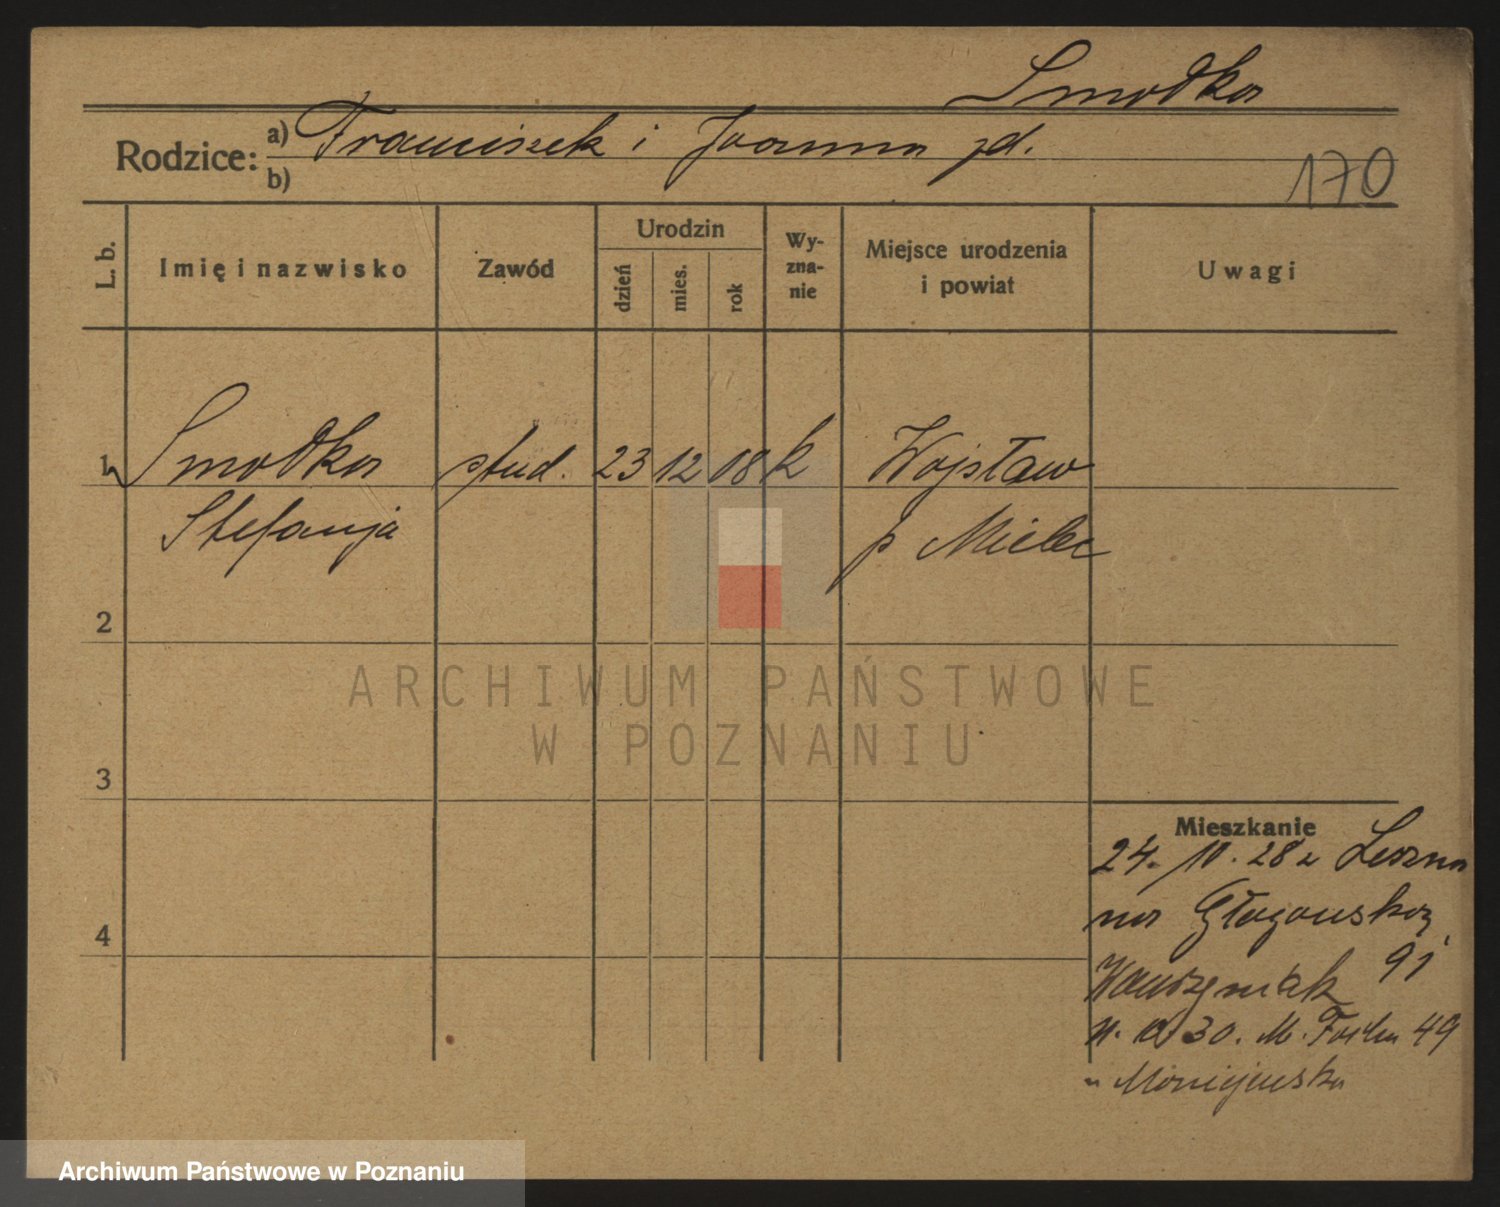 Smodka
Rodzice: a) Franciszek i Joanna zd.
b)
170
L. b.
Imię i nazwisko
Zawód
Urodzin
dzień
mies.
rok
Wy-
zna-
nie
Miejsce urodzenia
i powiat
Uwagi
1 Smodka stud. 23 12 08 k Wojsław
Stefanja p Mielec
2
3
4
ARCHIWUM PAŃSTWOWE
W POZNANIU
Mieszkanie
24. 10. 28 z Leszna
na Głogowską
91
Wawrzyniak
30. M. Focha 49
Archiwum Państwowe w Poznaniu